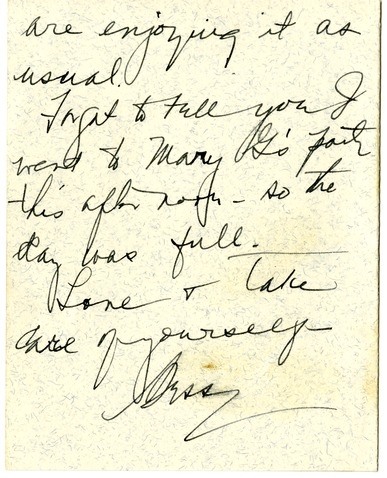 are enjoying it as
usual.
Forgot to tell you I
went to Mary G's party
this afternoon - so the
day was full.
Love & take
care of yourself
Bess